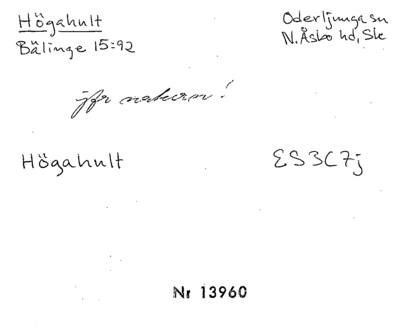 Högahult
Bälinge 15:92
Oderljunga sn
N. Åsbo hd, Ske
jfr naturen!
Högahult
ES3C7j
Nr 13960